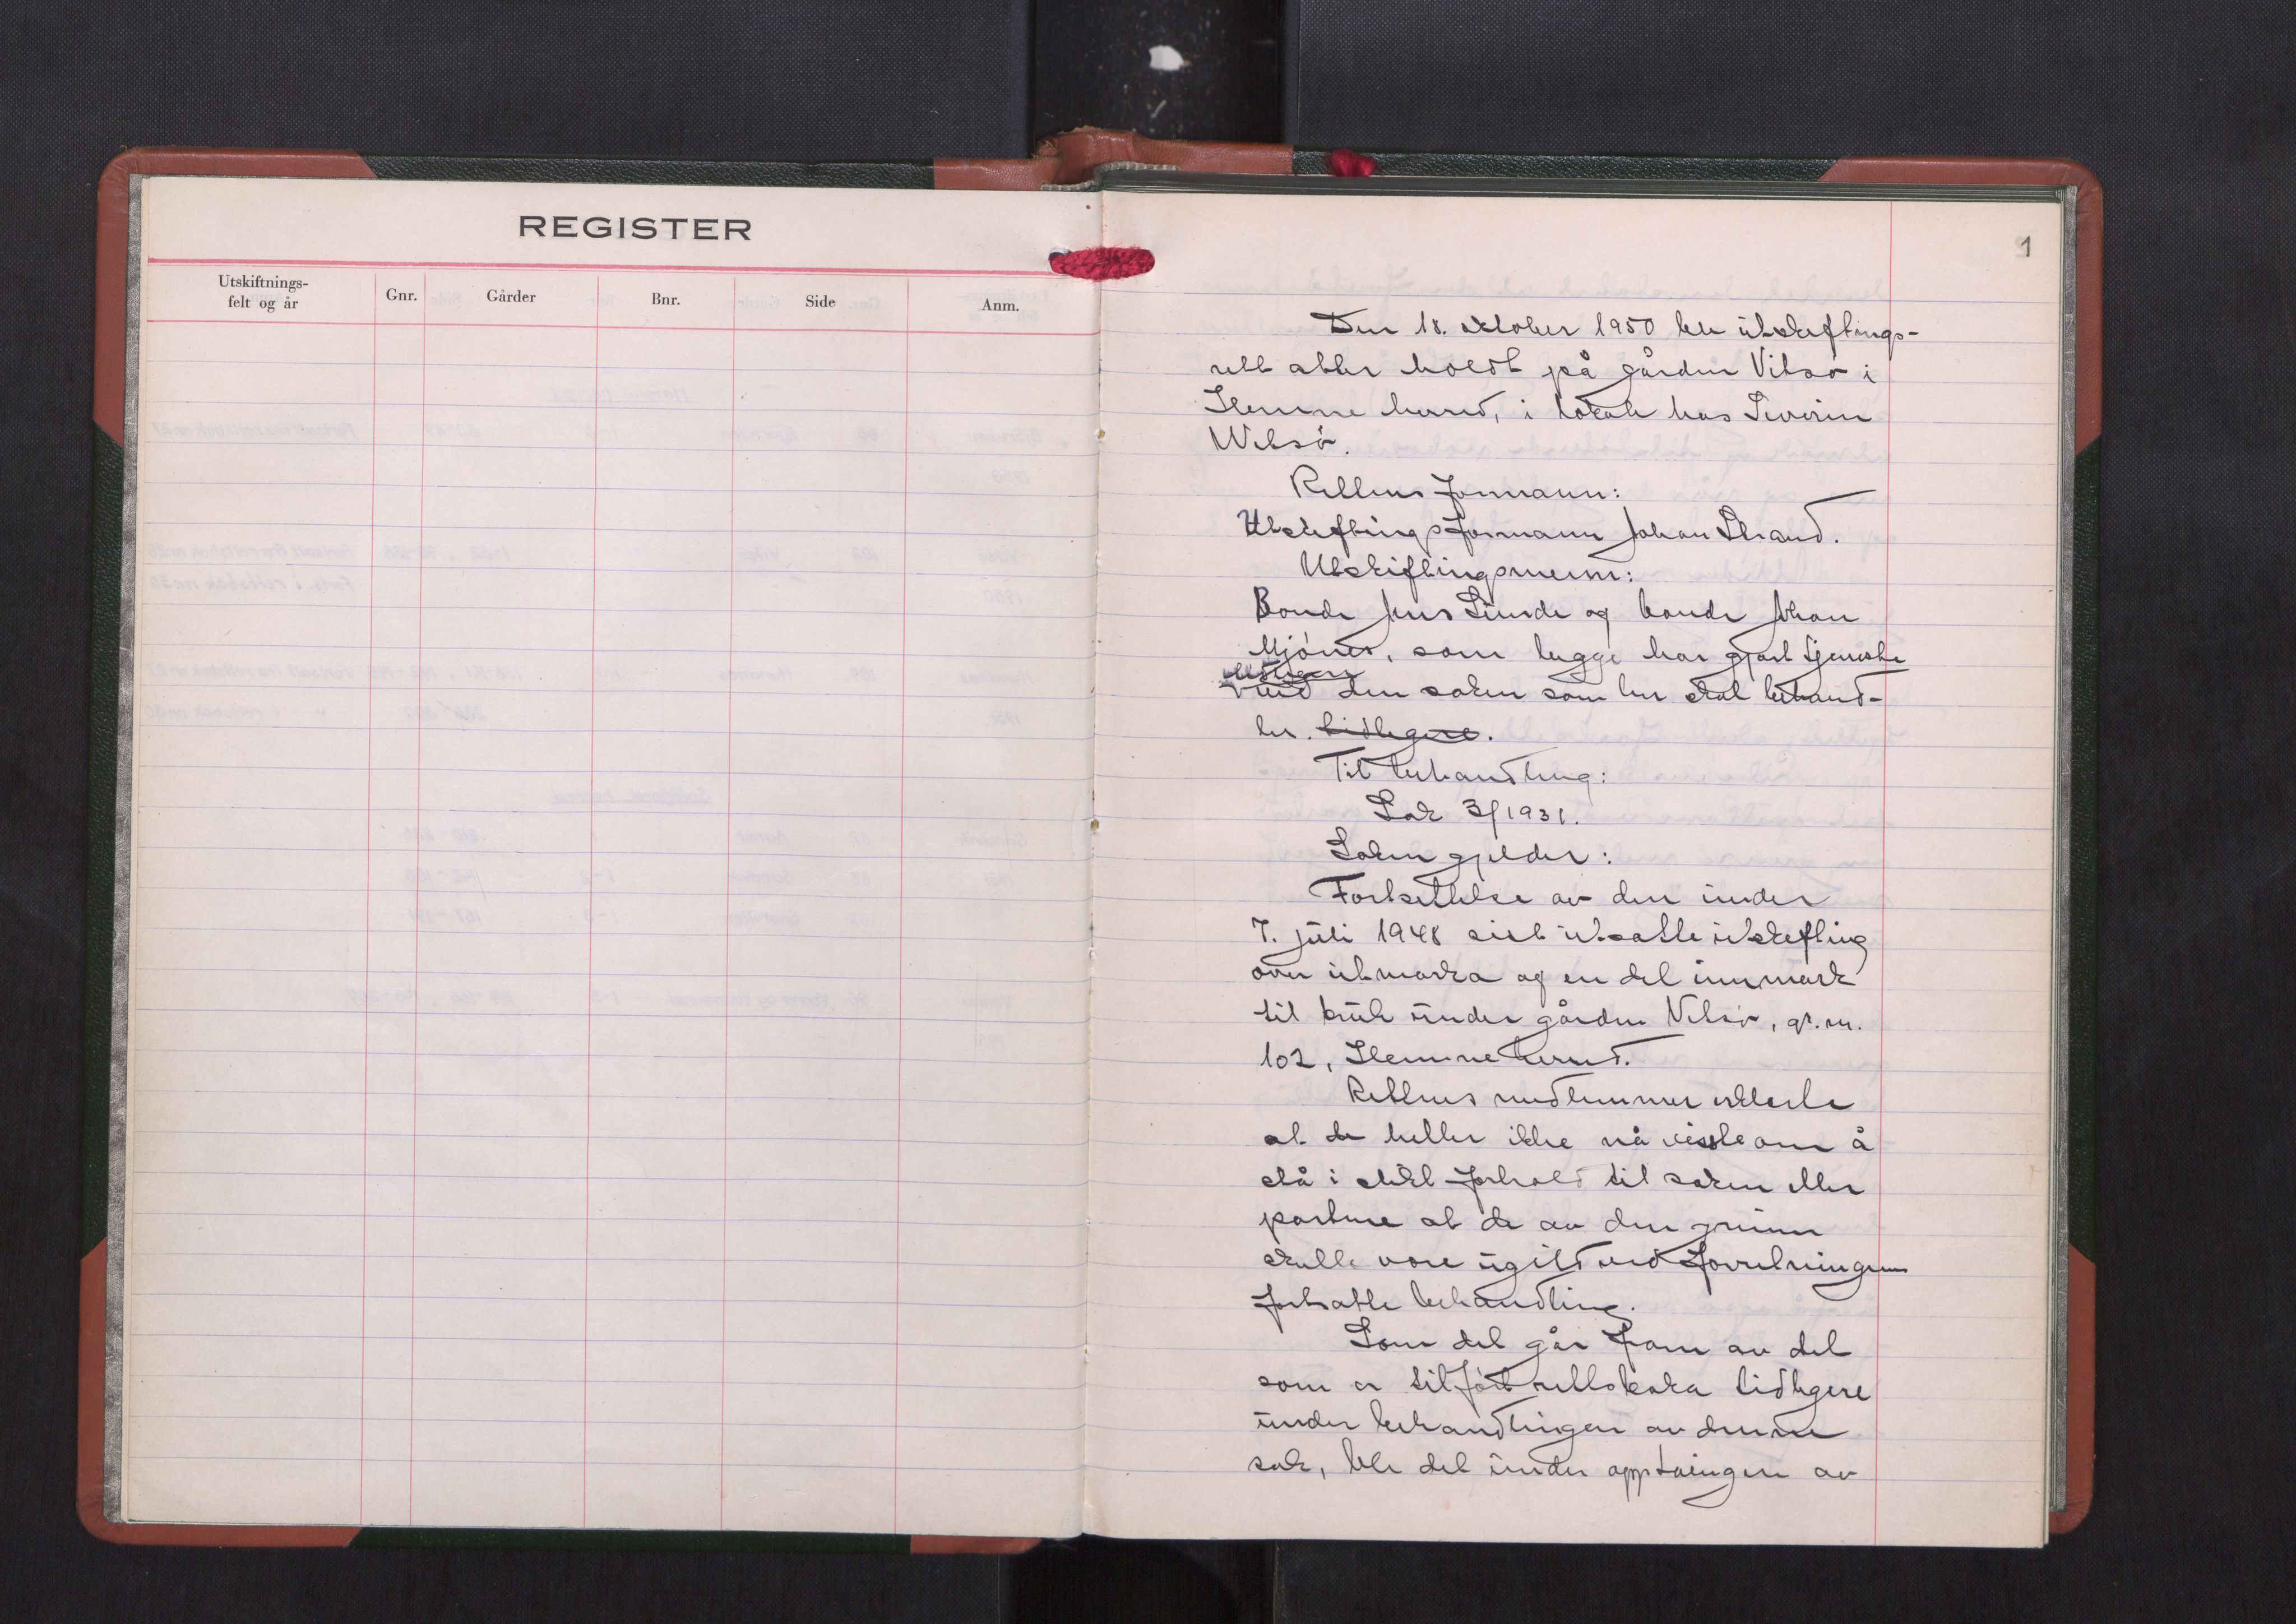 REGISTER
Utskiftnings-
felt og år
Gnr.
Gårder
Bnr.
Side
Anm.
1
Den 18. oktober 1950 ble utskiftings-
rett atter holdt på gården Vitsø i
Hemne herred, i lokale hos Severin
Witsø.
Rettens formann:
Utskiftingsformann Johan Strand.
Utskiftingsmenn:
Bonde Jens Sunde og bonde Johan
Mjønes, som begge har gjort tjeneste
tidligere
ved den saken som her skal behand-
les. tidligere.
Til behandling:
Sak 3/1931.
Saken gjelder:
Fortsettelse av den under
7. juli 1948 sist utsatte utskifting
over utmarka og en del innmark
til bruk under gården Vitsø, gr.nr.
102, Hemne herred.
Rettens medlemmer erklærte
at de heller ikke nå visste om å
stå i slikt forhold til saken eller
partene at de av den grunn
skulle være ugild ved forretningens
fortsatte behandling.
Som det går fram av det
som er tilført rettsboka tidligere
under behandlingen av denne
sak, ble det under opptaingen av